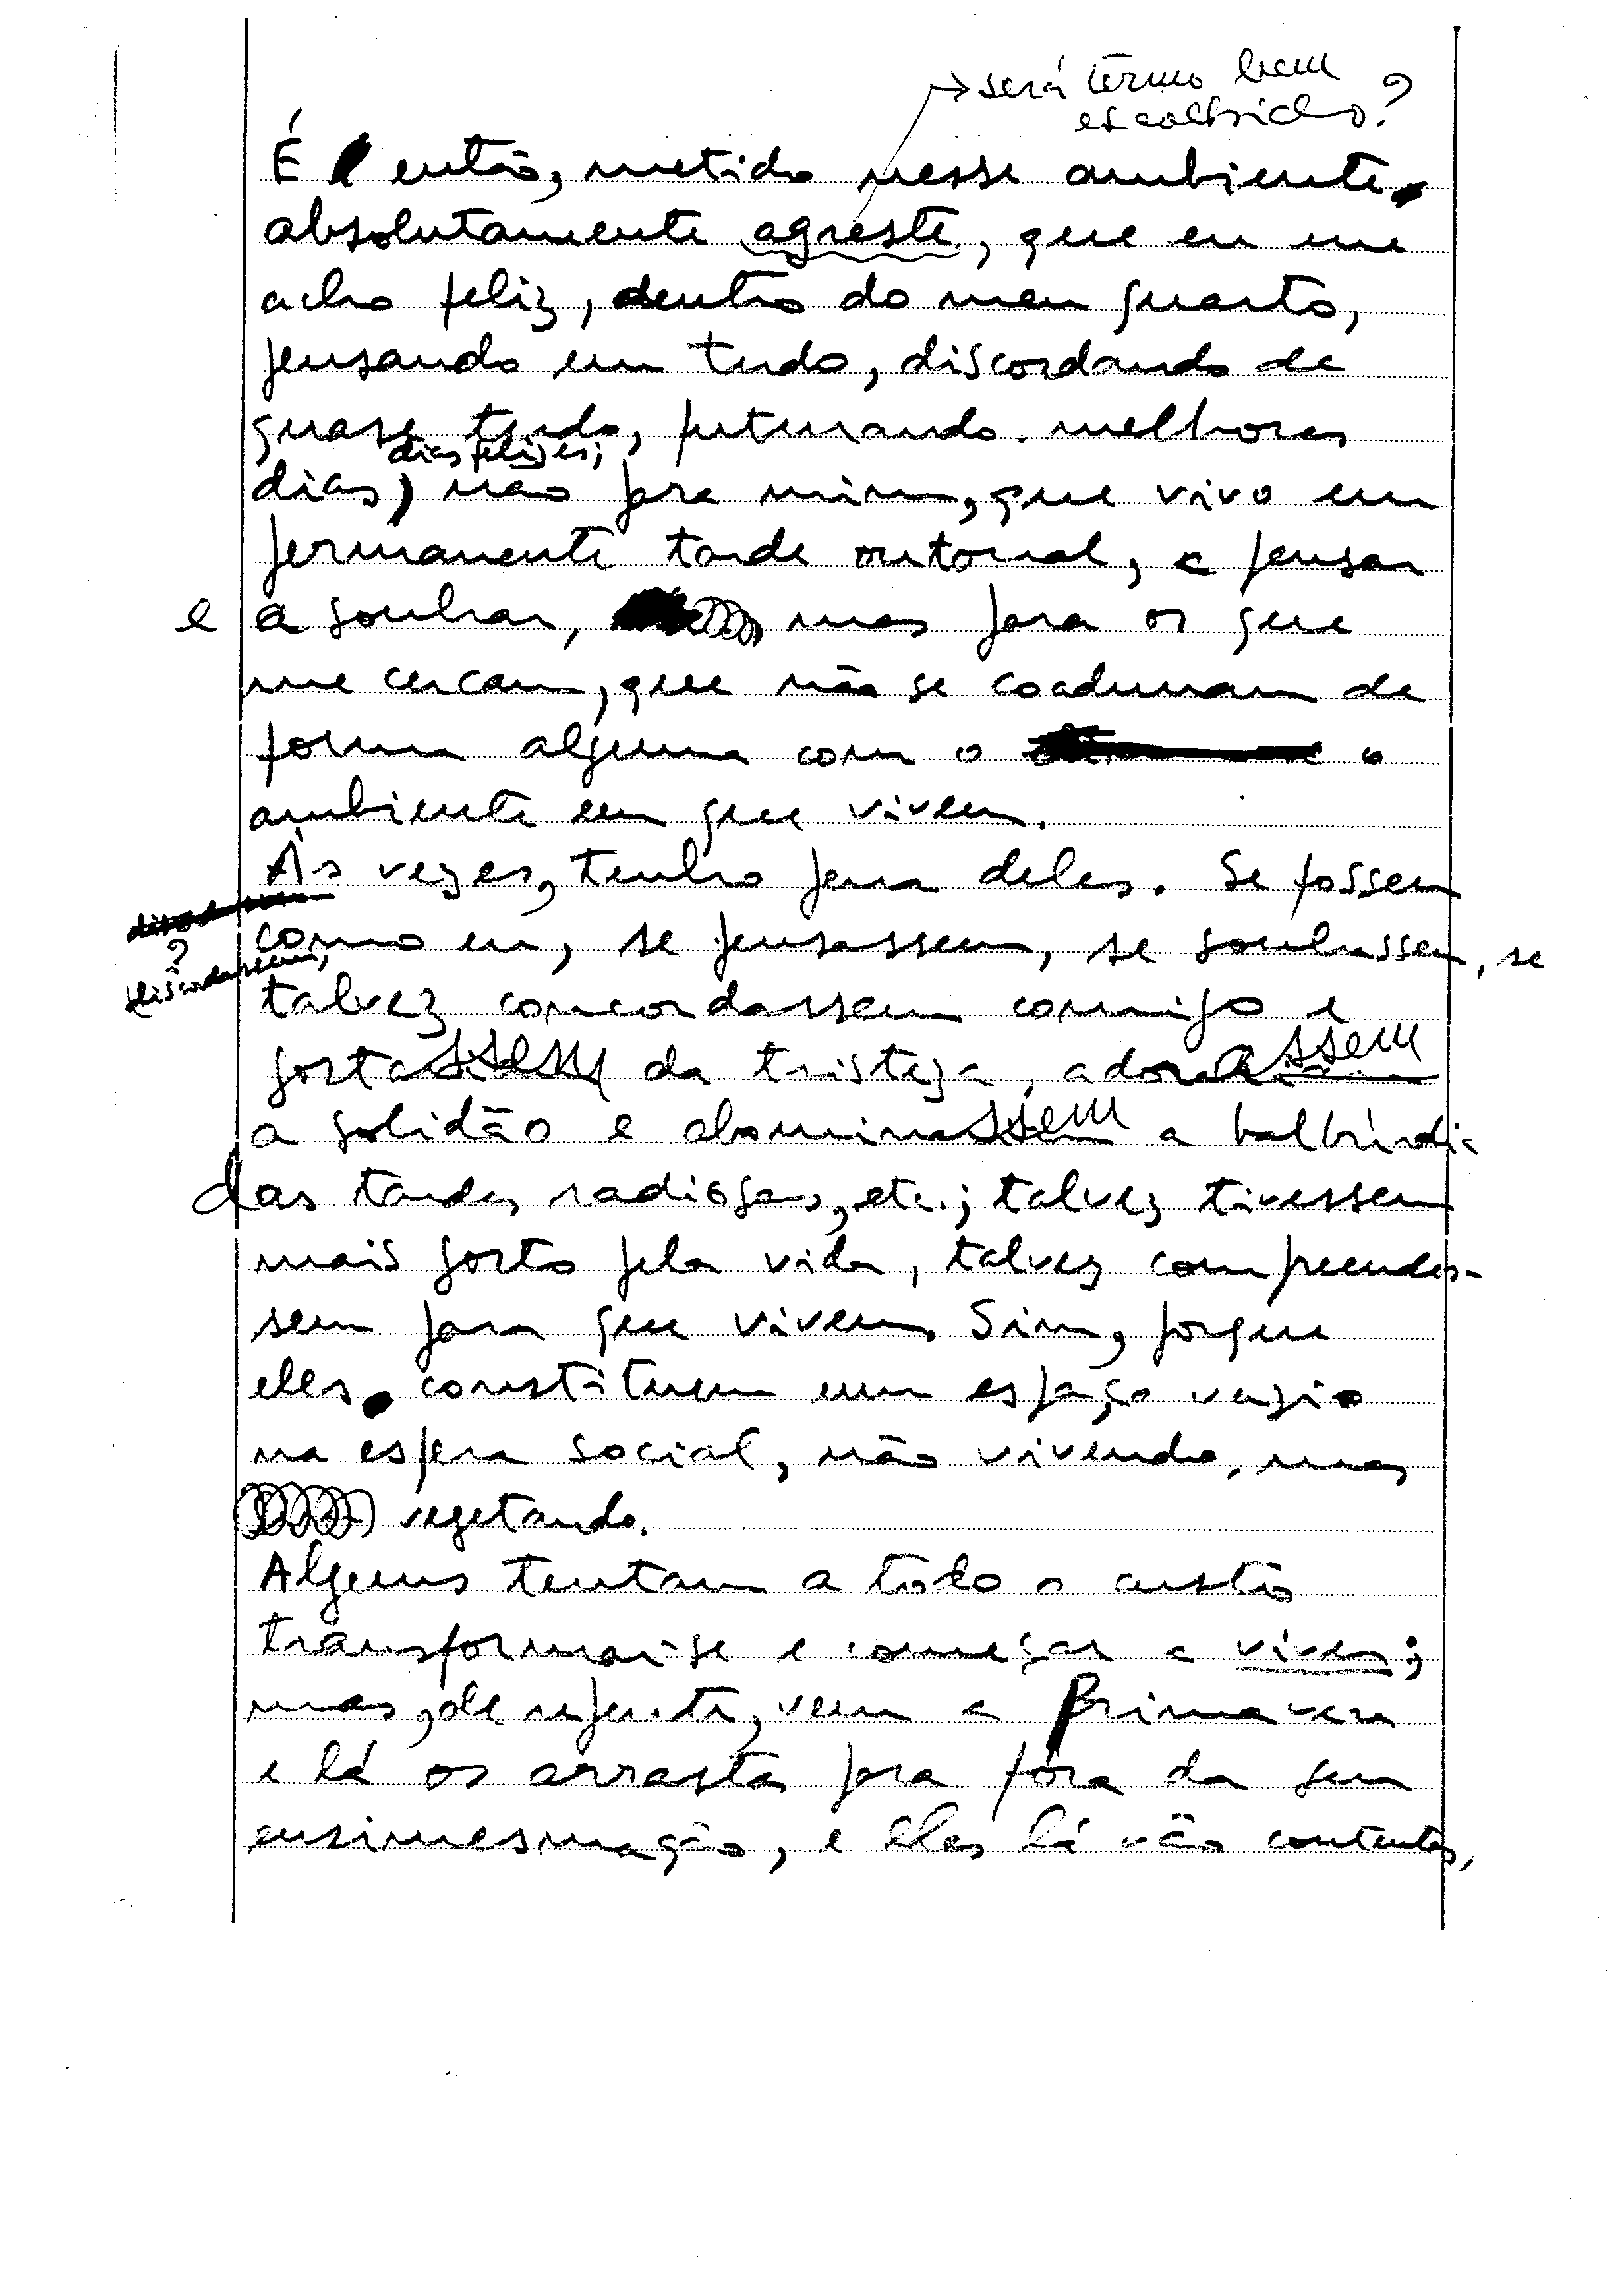 → será têrmo bem
escolhido?
É então, metido nesse ambiente
absolutamente agreste, que eu me
acho feliz, dentro do meu quarto,
pensando em tudo, discordando de
quase tudo, futurando melhores
dias felizes;
dias, não pra mim, que vivo em
permanente tarde outonal, a pensar
e a sonhar, mas para os que
me cercam, que não se coadunam de
forma alguma com o o
ambiente em que vivem.
Às vezes, tenho pena deles. Se fossem
como eu, se pensassem, se sonhassem, se
? discordassem,
talvez concordassem comigo e
gostassem da tristeza, adorassem
a solidão e abominassem a balbúrdia
das tardes radiosas, etc.; talvez tivessem
mais gosto pela vida, talvez compreendes-
sem para que vivem. Sim, porque
eles constituem um espaço vazio
na esfera social, não vivendo, mas
vegetando.
Alguns tentam a todo o custo
transformar-se e começar a viver;
mas, de repente, vem a Primavera
e lá os arrasta pra fora da sua
ensimesmação, e eles lá vão contentes,